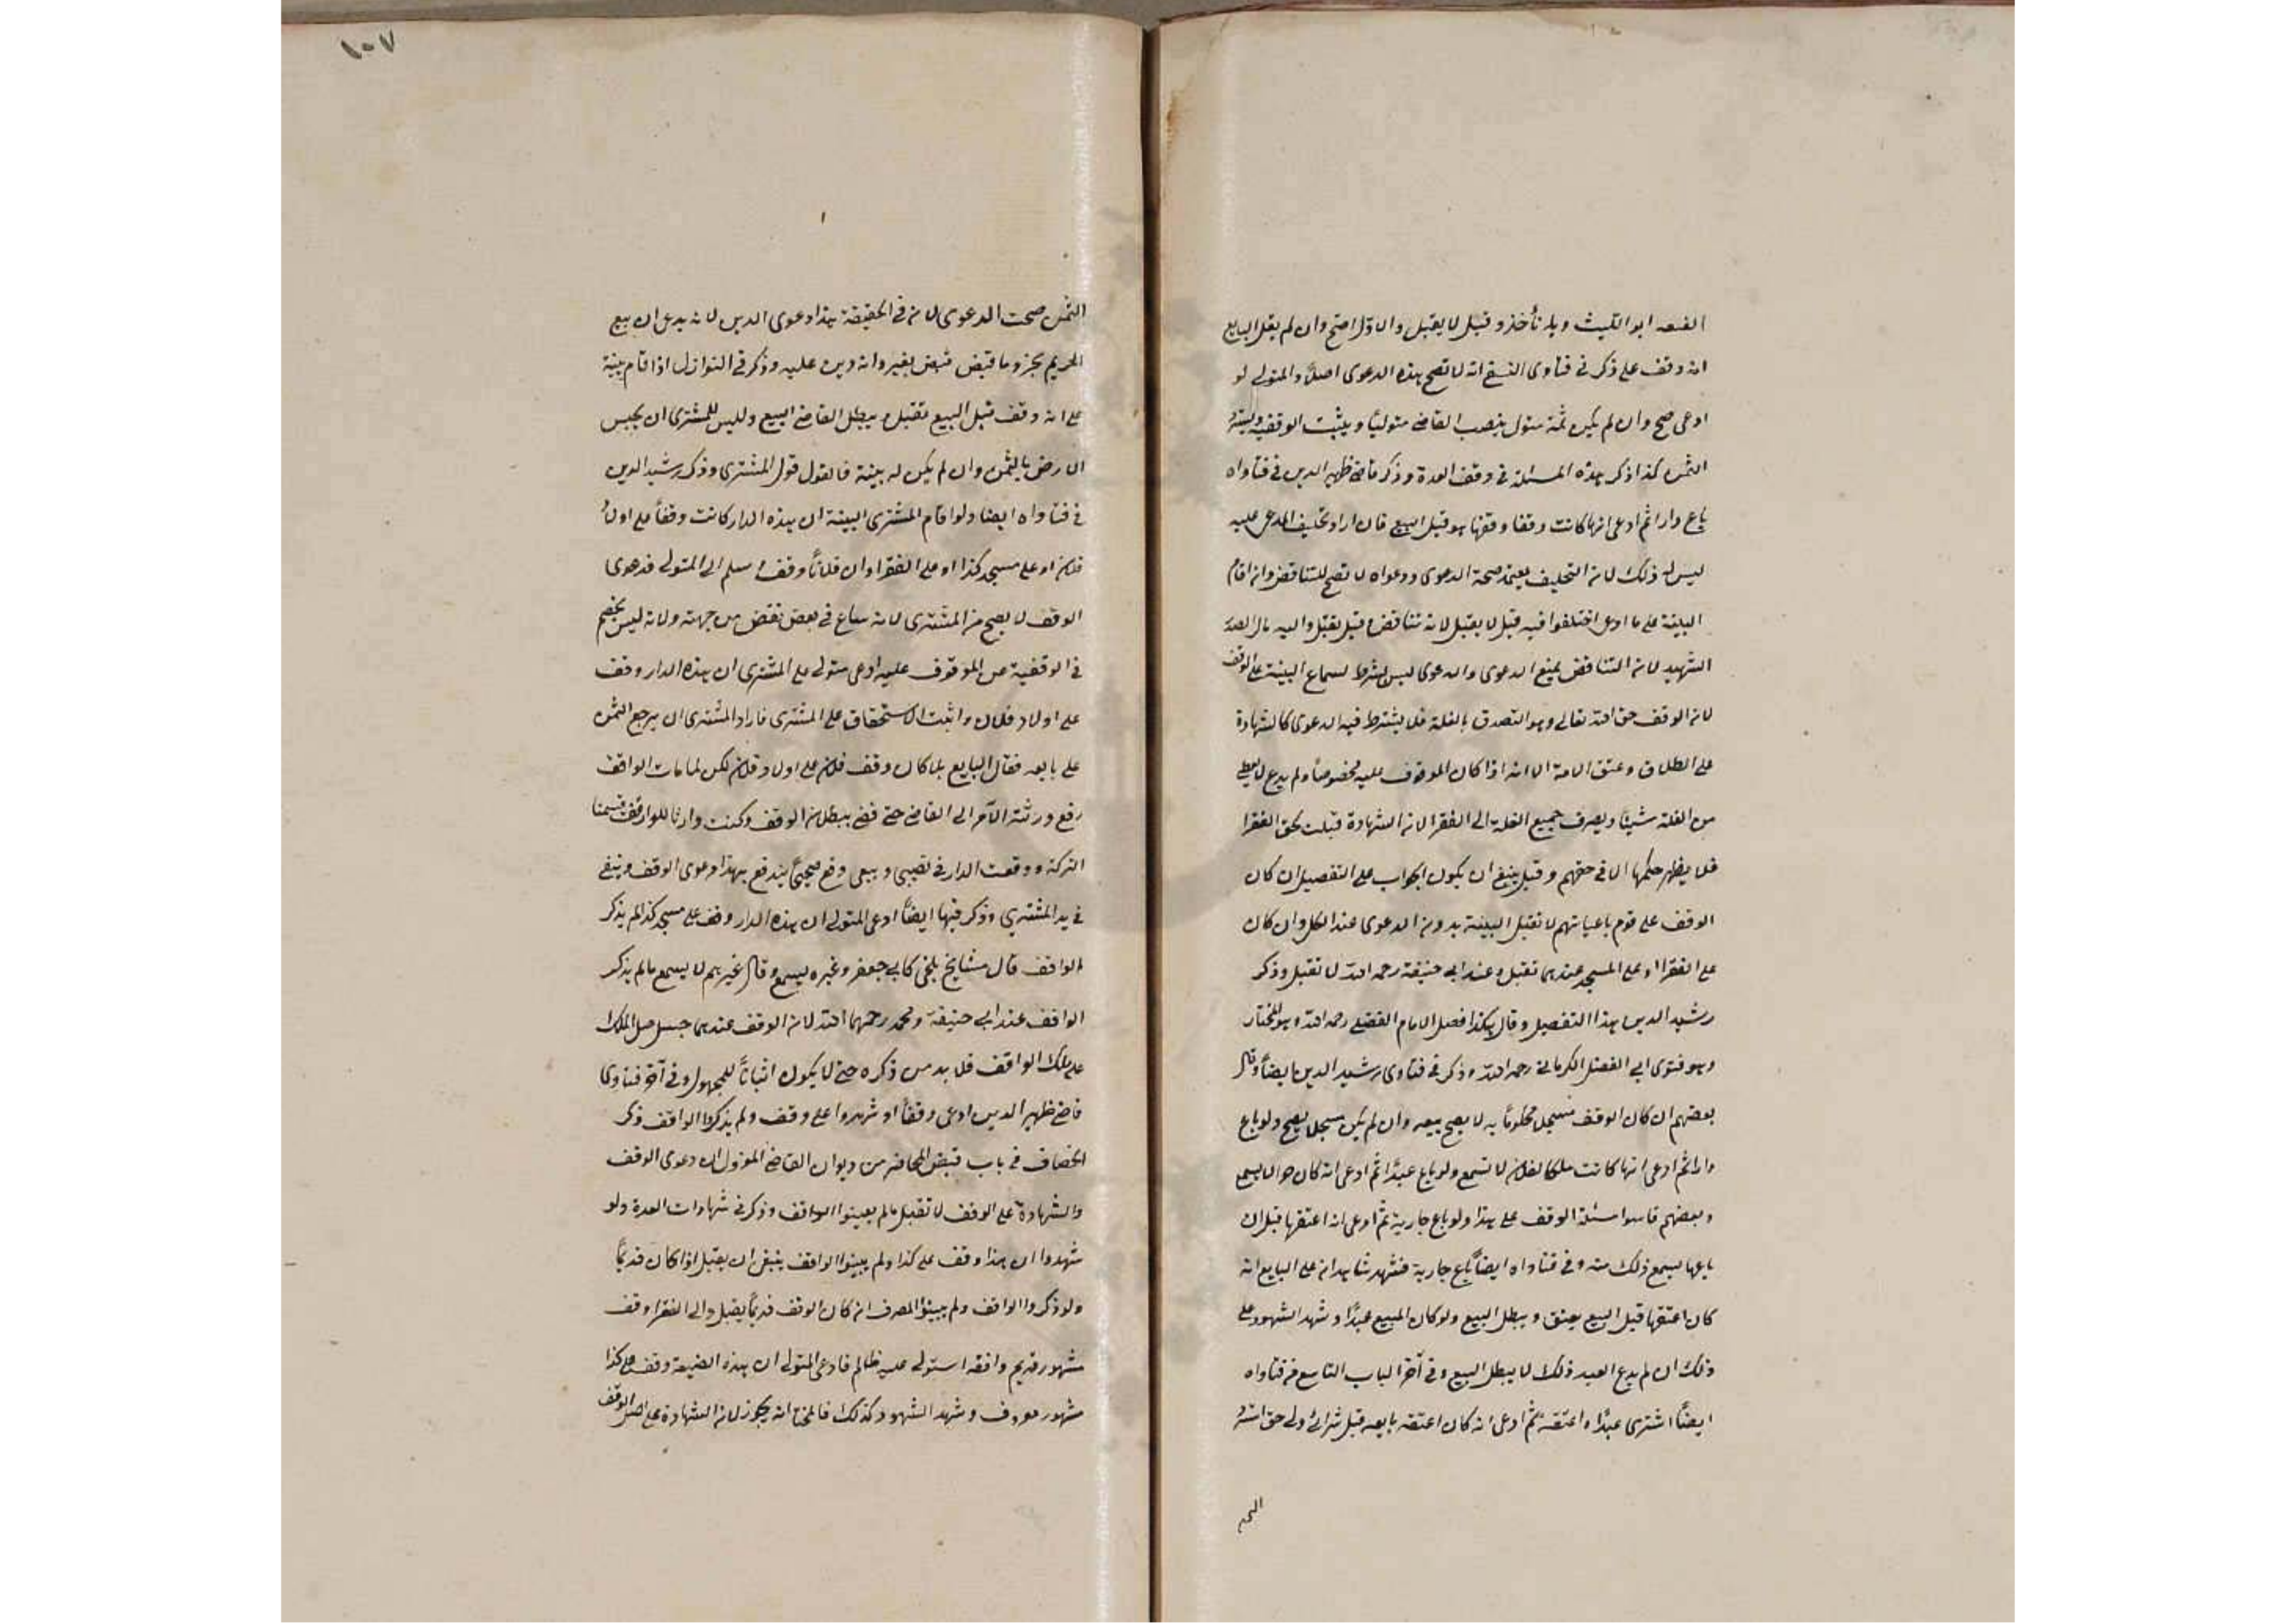 الفقيه ابو الليث وبه نأخذ وقيل لا يقبل والاول اصح وان لم يقل البايع
انه وقف على ذكر في فتاوى النسفي انه لا تصح هذه الدعوى اصلاً والمتولي لو
ادعى صح وان لم يكن ثمة متول ينصب القاضي متولياً ويثبت الوقفية ويسترد
الثمن كذا ذكر هذه المسئلة في وقف العدة وذكر قاضي ظهير الدين في فتاواه
باع دارا ثم ادعى انها كانت وقفا وقفها هو قبل البيع فان اراد تحليف المدعى عليه
ليس له ذلك لان التحليف يعتمد صحة الدعوى ودعواه لا تصح للتناقض وان اقام
البينة على ما ادعى اختلفوا فيه قيل لا يقبل لانه تناقض وقيل يقبل واليه مال الصدر
الشهيد لان التناقض يمنع الدعوى والدعوى ليس بشرط لسماع البينة على الوقف
لان الوقف حق الله تعالى وهو التصدق بالغلة فلا يشترط فيه الدعوى كالشهادة
على الطلاق وعتق الامة الا انه اذا كان الموقوف عليه مخصوصاً ولم يدع لا يعطى
من الغلة شيئا ويصرف جميع الغلة الى الفقرا لان الشهادة قبلت لحق الفقرا
فلا يظهر حكمها الا في حقهم وقيل ينبغي ان يكون الجواب على التفصيل ان كان
الوقف على قوم باعيانهم لا تقبل البينة بدون الدعوى عند الكل وان كان
على الفقرا او على المسجد عندهما تقبل وعند ابي حنيفة رحمه الله لا تقبل وذكر
رشيد الدين هذا التفصيل وقال هكذا فصل الامام الفضلي رحمه الله وهو المختار
وهو فتوى ابي الفضل الكرماني رحمه الله وذكر في فتاوى رشيد الدين ايضاً وقال
بعضهم ان كان الوقف مسجلا محكوماً به لا يصح بيعه وان لم يكن مسجلا يصح ولو باع
دارا ثم ادعى انها كانت ملكا لفلان لا تسمع ولو باع عبداً ثم ادعى انه كان حرا لا يسمع
وبعضهم قاسوا مسئلة الوقف على هذا ولو باع جارية ثم ادعى انه اعتقها قبل ان
باعها يسمع ذلك منه وفي فتاواه ايضاً باع جارية فشهد شاهدان على البايع انه
كان اعتقها قبل البيع يعتق ويبطل البيع ولو كان المبيع عبداً وشهد الشهود على
ذلك ان لم يدع العبد ذلك لا يبطل البيع وفي آخر الباب التاسع من فتاواه
ايضاً اشترى عبداً واعتقه ثم ادعى انه كان اعتقه بايعه قبل شرائي ولي حق استرد
١٠٧
الثمن صحت الدعوى لان في الحقيقة هذا دعوى الدين لانه يدعى ان بيع
الحر لم يجز وما قبض قبض بغير وانه دين عليه وذكر في النوازل اذا قام بينة
على انه وقف قبل البيع تقبل ويبطل القاضي البيع وليس للمشترى ان يحبس
الارض بالثمن وان لم يكن له بينة فالقول قول المشترى وذكر رشيد الدين
في فتاواه ايضا ولو اقام المشترى البينة ان هذه الدار كانت وقفاً على اولاد
فلان او على مسجد كذا او على الفقرا وان فلاناً وقف وسلم الى المتولي فدعوى
الوقف لا يصح من المشترى لانه ساع في بعض نقض من جهته ولانه ليس بخصم
في الوقفية عن الموقوف عليه ادعى متولي على المشترى ان هذه الدار وقف
على اولاد فلان واثبت الاستحقاق على المشترى فاراد المشترى ان يرجع الثمن
على بايعه فقال البايع بلى كان وقف فلان على اولاد فلان لكن لما مات الواقف
رفع ورثته الامر الى القاضي حتى قضى ببطلان الوقف وكنت وارثا للواقف قسمنا
التركة ووقعت الدار في نصيبي وبيعي وقع صحيحاً يندفع بهذا دعوى الوقف ويبقى
في يد المشتري وذكر فيها ايضاً ادعى المتولي ان هذه الدار وقف على مسجد كذا لم يذكر
الواقف قال مشايخ بلخي كابي جعفر وغيره يسمع وقال غيرهم لا يسمع ما لم يذكر
الواقف عند ابي حنيفة ومحمد رحمهما الله لان الوقف عندهما حبس اصل الملك
على ملك الواقف فلا بد من ذكره حتى لا يكون اثباتاً للمجهول وفي آخر فتاوى
قاضي ظهير الدين ادعى وقفاً او شهدوا على وقف ولم يذكروا الواقف ذكر
الخصاف في باب قبض المحاضر من ديوان القاضي المعزول ان دعوى الوقف
والشهادة على الوقف لا تقبل ما لم يعينوا الواقف وذكر في شهادات العدة ولو
شهدوا ان هذا وقف على كذا ولم يبينوا الواقف ينبغي ان يقبل اذا كان قديماً
ولو ذكروا الواقف ولم يبينوا المصرف ان كان الوقف قديماً يقبل والى الفقرا وقف
مشهور قديم وافقه استولى عليه ظالم فادعى المتولي ان هذه الضيعة وقف على كذا
مشهور معروف وشهد الشهود كذلك فالمختار انه يجوز لان الشهادة على اصل الوقف